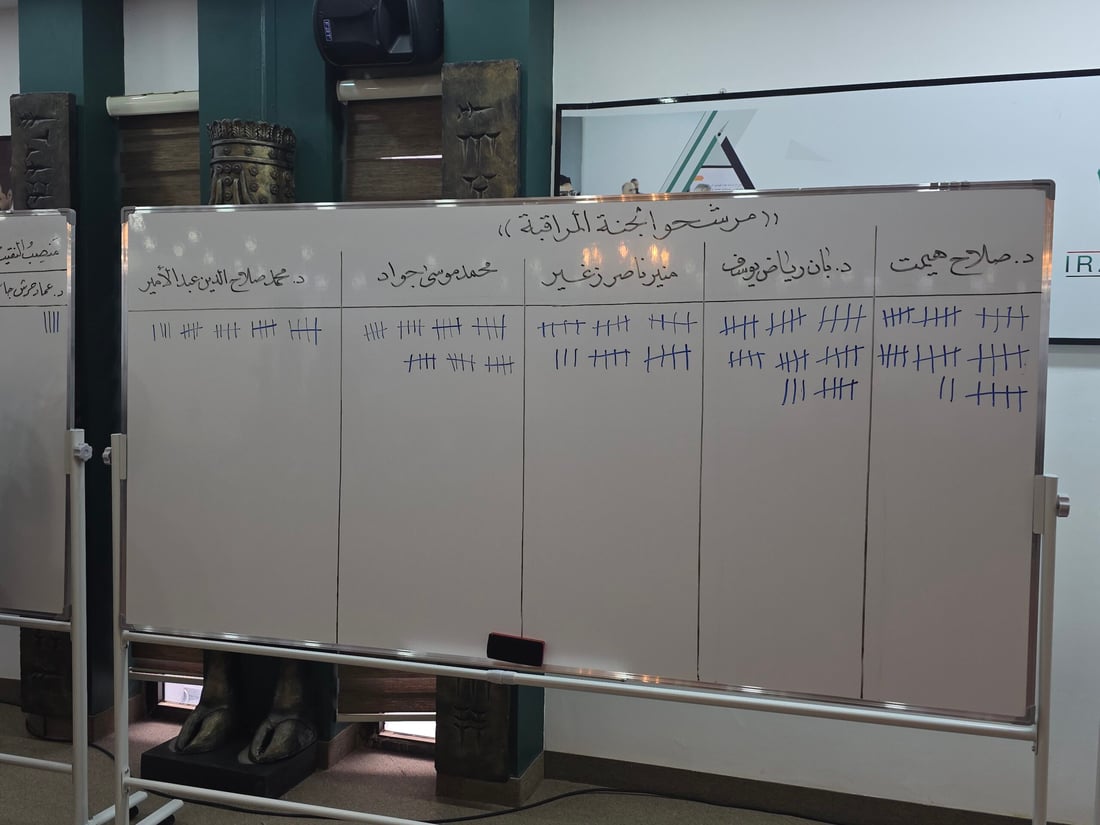 ((مرشحوا لجنة المراقبة))
د. صلاح هيمت
د. بان رياض يوسف
منير ناصر زغير
محمد موسى جواد
د. محمد صلاح الدين عبد الأمير
منصب النقيب
د. عماد
IRA